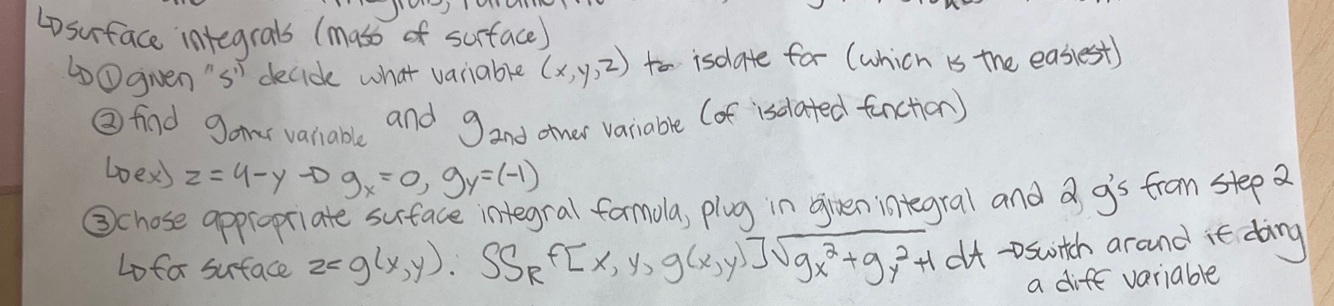 ↳ surface integrals (mass of surface)
↳ ① given "s" decide what variable (x,y,z) to isolate for (which is the easiest)
② find g other variable and g 2nd other variable (of isolated function)
↳ ex) z=4-y → gₓ=0, gᵧ=(-1)
③ chose appropriate surface integral formula, plug in given integral and 2 g's from step 2
↳ for surface z=g(x,y): SS_R f[x, y, g(x,y)]√(gₓ²+gᵧ²+1) dA → switch around if doing
a diff variable